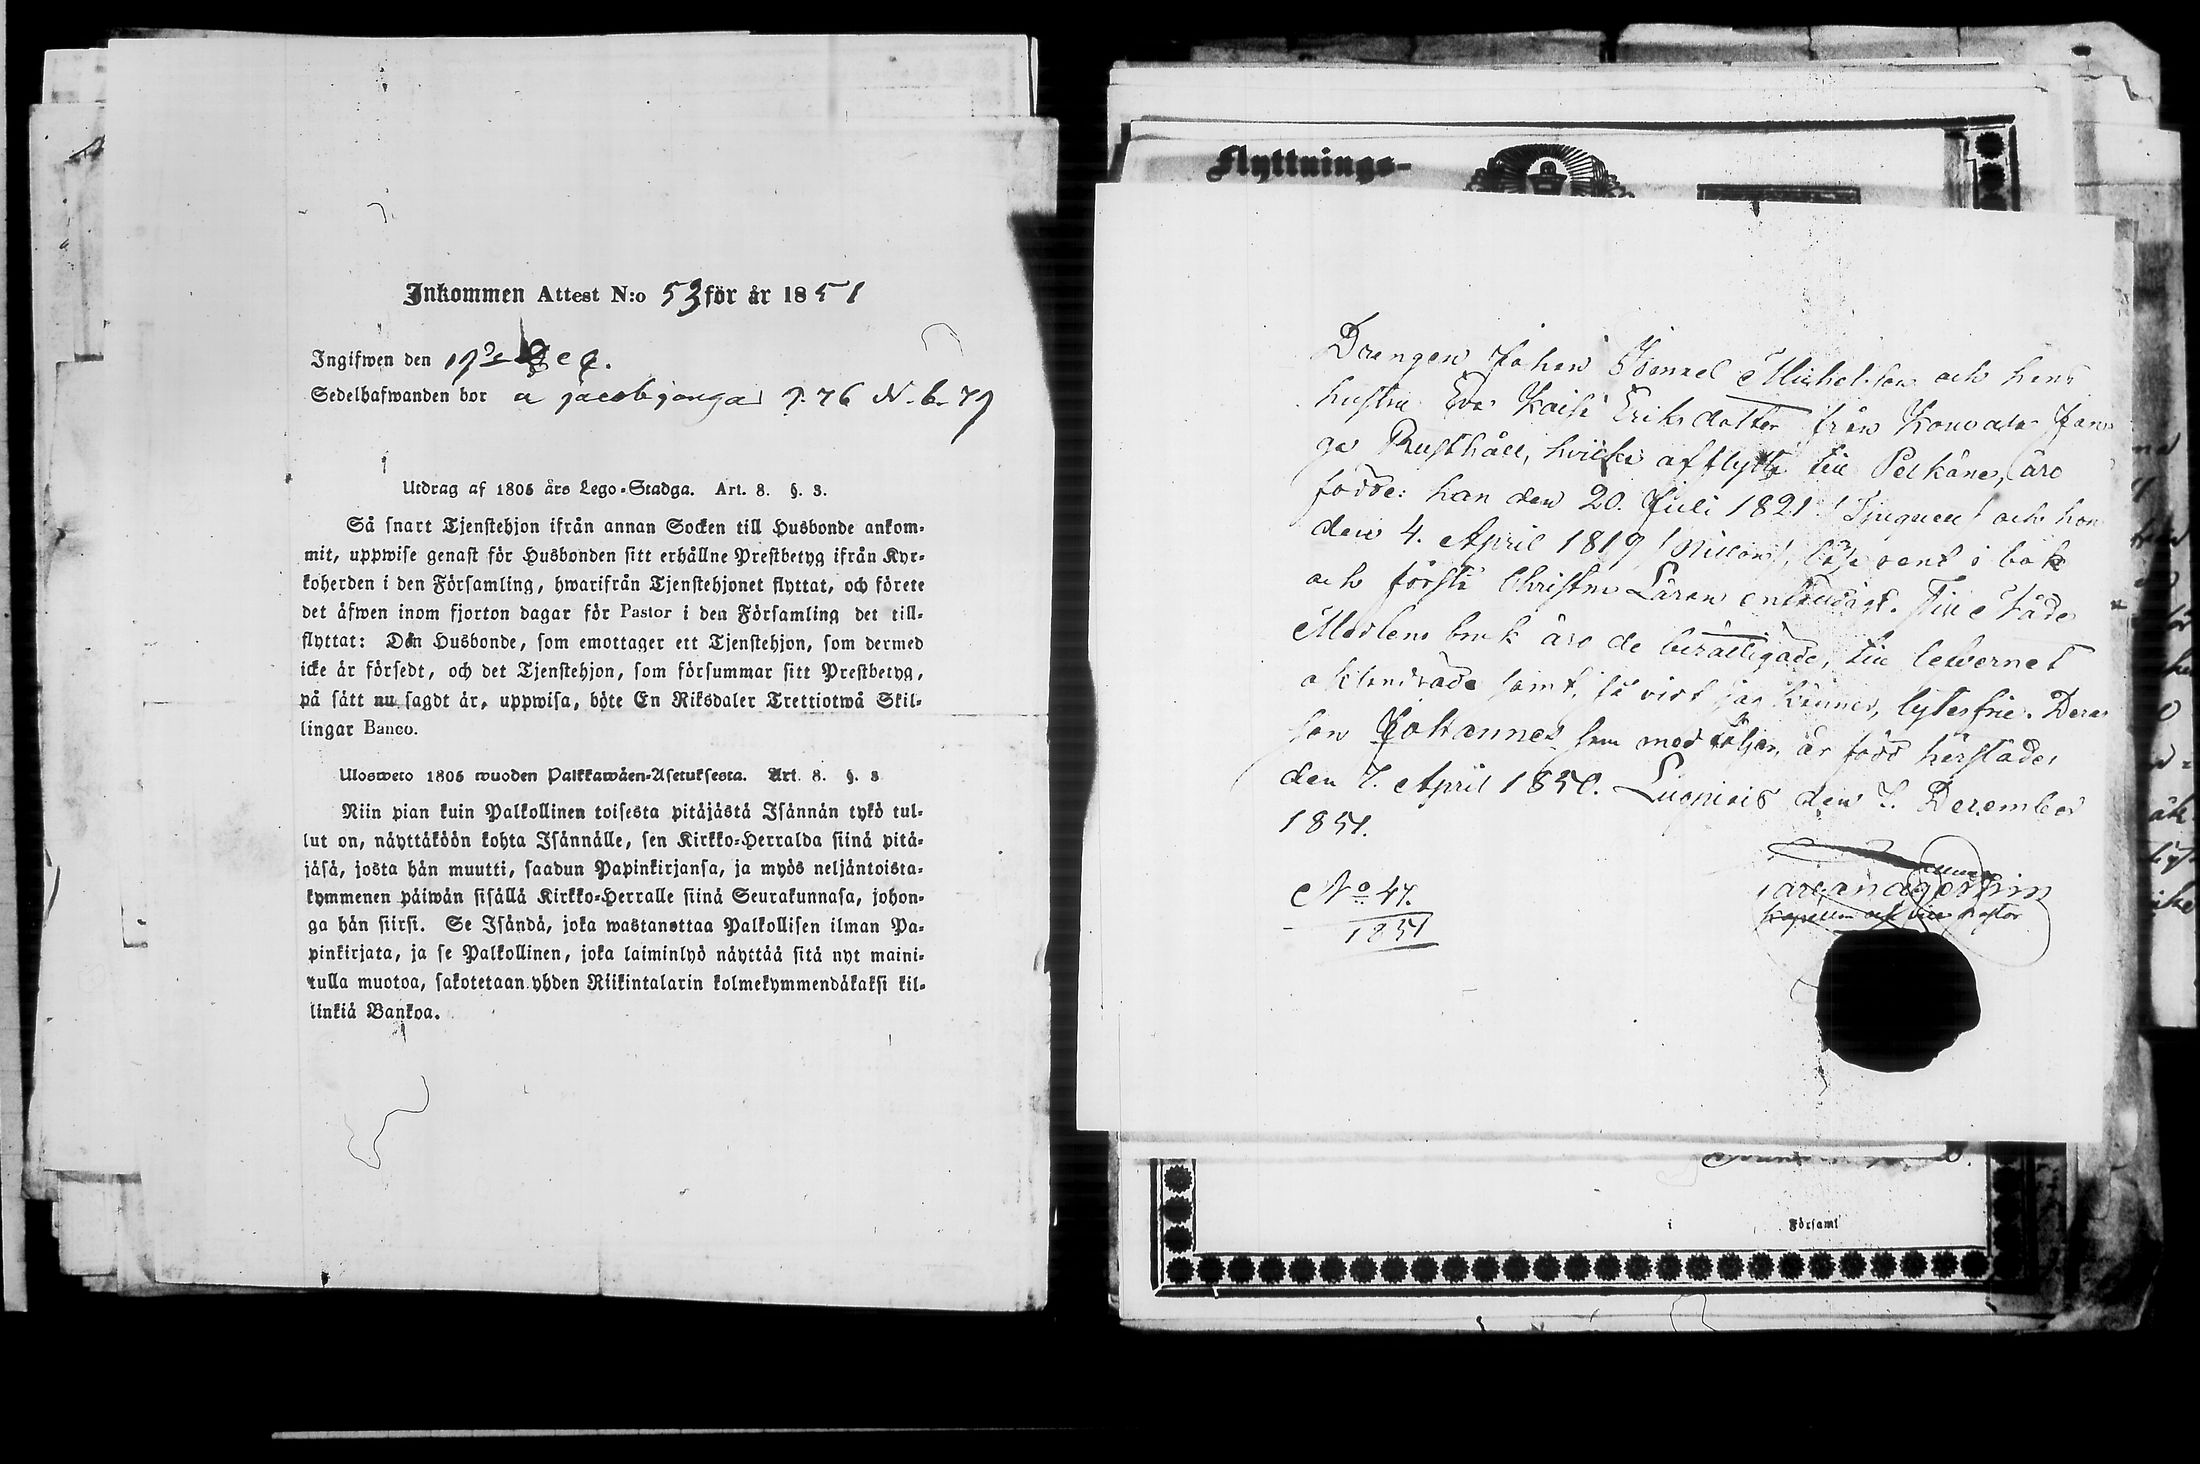 Inkommen Attest N:o 53 för år 1851
Ingifwen den 17de Dec.
Sedelhafwanden bor a jacobjonga p. 76 N. b. 77
Utdrag af 1805 års Lego-Stadga. Art. 8. §. 3.
Så snart Tjenstehjon ifrån annan Socken till Husbonde ankom-
mit, uppwise genast för Husbonden sitt erhållne Prestbetyg ifrån Kyr-
koherden i den Församling, hwarifrån Tjenstehjonet flyttat, och förete
det äfwen inom fjorton dagar för Pastor i den Församling det till-
flyttat: Den Husbonde, som emottager ett Tjenstehjon, som dermed
icke är försedt, och det Tjenstehjon, som försummar sitt Prestbetyg,
på sätt nu sagdt är, uppwisa, böte En Riksdaler Trettiotwå Skil-
lingar Banco.
Ulosweto 1805 wuoden Palkkawäen-Asetuksesta. Art. 8. §. 3
Niin pian kuin Palkollinen toisesta pitäjästä Isännän tykö tul-
lut on, näyttäköön kohta Isännälle, sen Kirkko-Herralda siinä pitä-
jäsä, josta hän muutti, saadun Papinkirjansa, ja myös neljäntoista-
kymmenen päiwän sisällä Kirkko-Herralle siinä Seurakunnasa, johon-
ga hän siirsi. Se Isändä, joka wastanottaa Palkollisen ilman Pa-
pinkirjata, ja se Palkollinen, joka laiminlyö näyttää sitä nyt maini-
tulla muotoa, sakotetaan yhden Riikintalarin kolmekymmendäkaksi kil-
linkiä Bankoa.
Flyttnings-
Drengen Johan Michelsson och hans
hustru Eva Kaisa Eriksdotter från Kouvala Jan
ga Rusthåll, hvilka afflytta till Pelkäne, äro
födde: han den 20. Juli 1821 och hon
den 4. April 1819 läsa rent i bok
och förstå Christna Läran entäudigt. Till Nåde
Medlens bruk äro de berättigade, till lefvernet
oklandrade samt, så vidt jag känner, lytesfrie. Deras
son Johannes som medföljer, är född härstädes
den 7. April 1850. Luopiois den 7. December
1851.
No 47.
1851
Kapellan och vice Pastor
i Församl